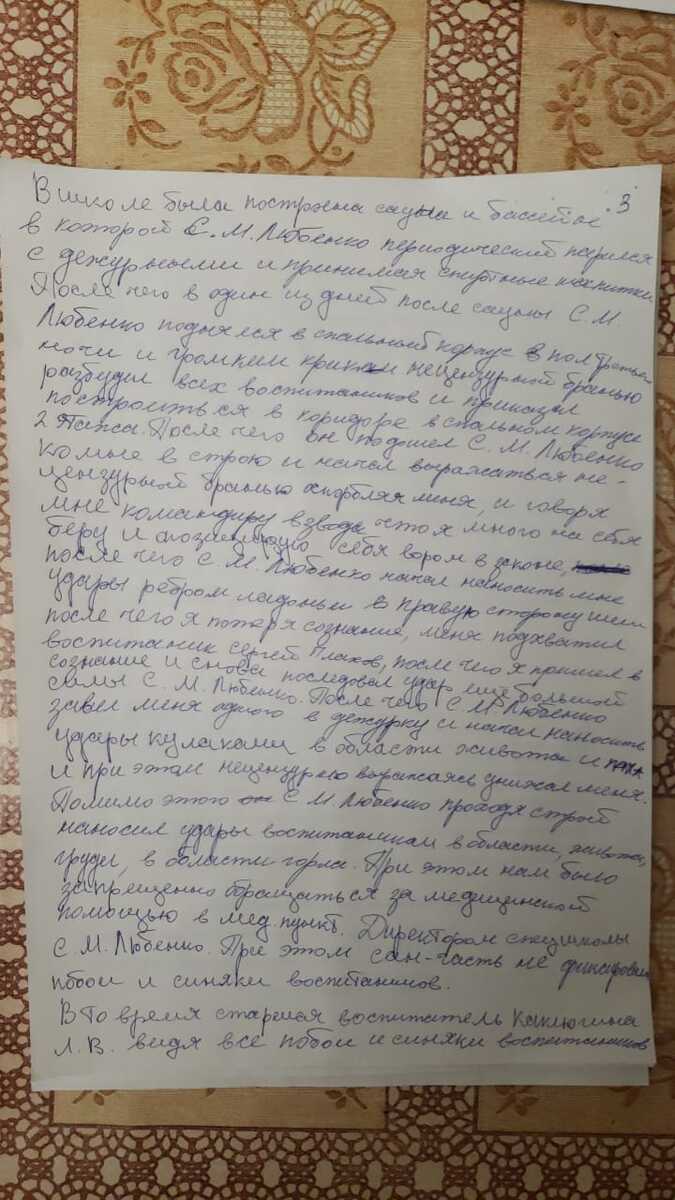 3
В школе была построена сауна и бассейн
в которой С.М.Любенко периодический парился
с дежурными и принимая спиртные напитки
После чего в один из дней после сауны С.М
Любенко поднялся в спальный корпус в пол третьего
ночи и громким криком нецензурной бранью
разбудил всех воспитаников и приказал
построиться в коридоре в спальном корпусе
2 этажа. После чего он подошел С.М.Любенко
ко мне в строю и начал выражаться не-
цензурной бранью оскорбляя меня, и говоря
мне командиру взвода что я много на себя
беру и себя вором в законе,
после чего С.М.Любенко начал наносить мне
удары ребром ладоньи в правую сторону шеи
после чего я потеря сознание, меня подхватил
воспитаник сергей Плахов, после чего я пришел в
сознание и снова последовал удар ещё большой
силы С.М.Любенко. После чего С.М Любенко
завел меня одного в дежурку и начал наносить
удары кулаками в области живота и паха
и при этом нецензурно выражаясь унижал меня.
Помимо этого С М Любенко проходя строй
наносил удары воспитаникам в области, живота,
груди, в области горла. При этом нам было
запрещенно обращаться за медицинской
помощью в мед.пункт. Директором спецшколы
С.М.Любенко. При этом сан-часть не фиксировала
побои и синяки воспитаников.
В то время старшая воспитатель Каклюгина
Л.В. видя все побои и синяки воспитаников